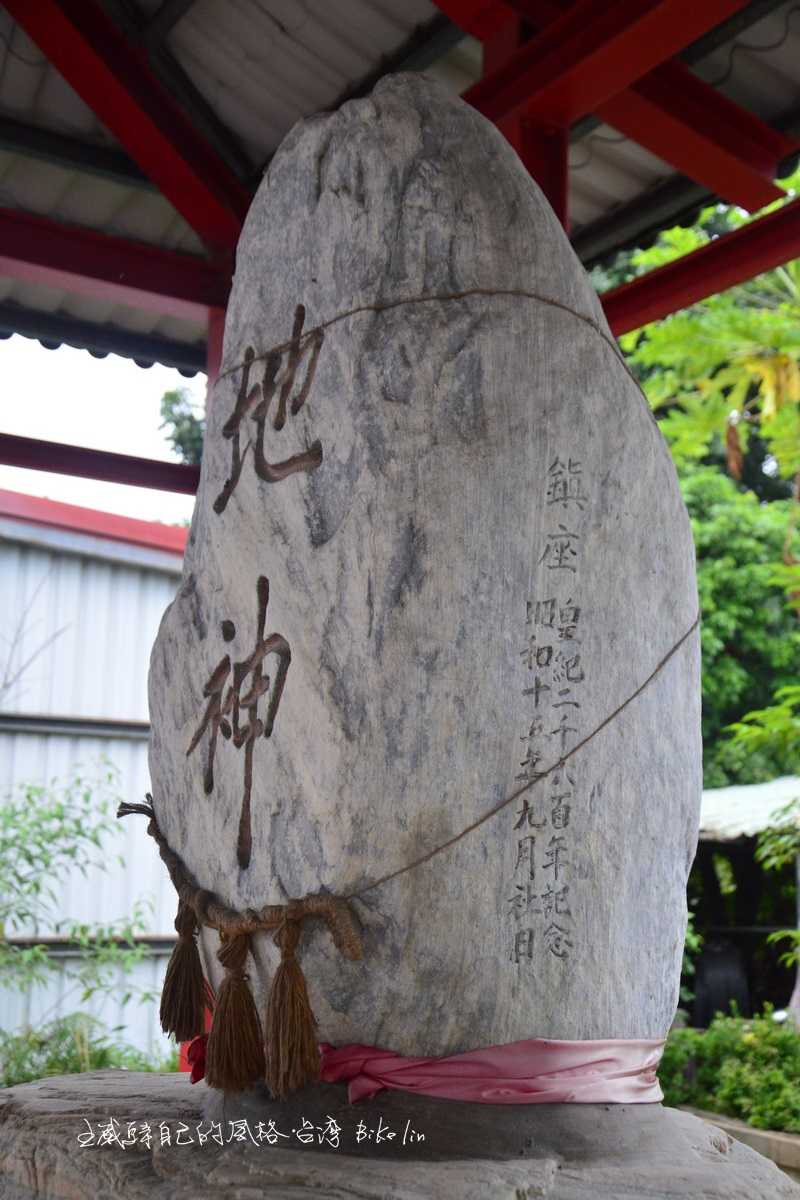 地神
鎮座
皇紀二千六百年記念
昭和十五年九月社日
自己的風格·台湾 Biko lin